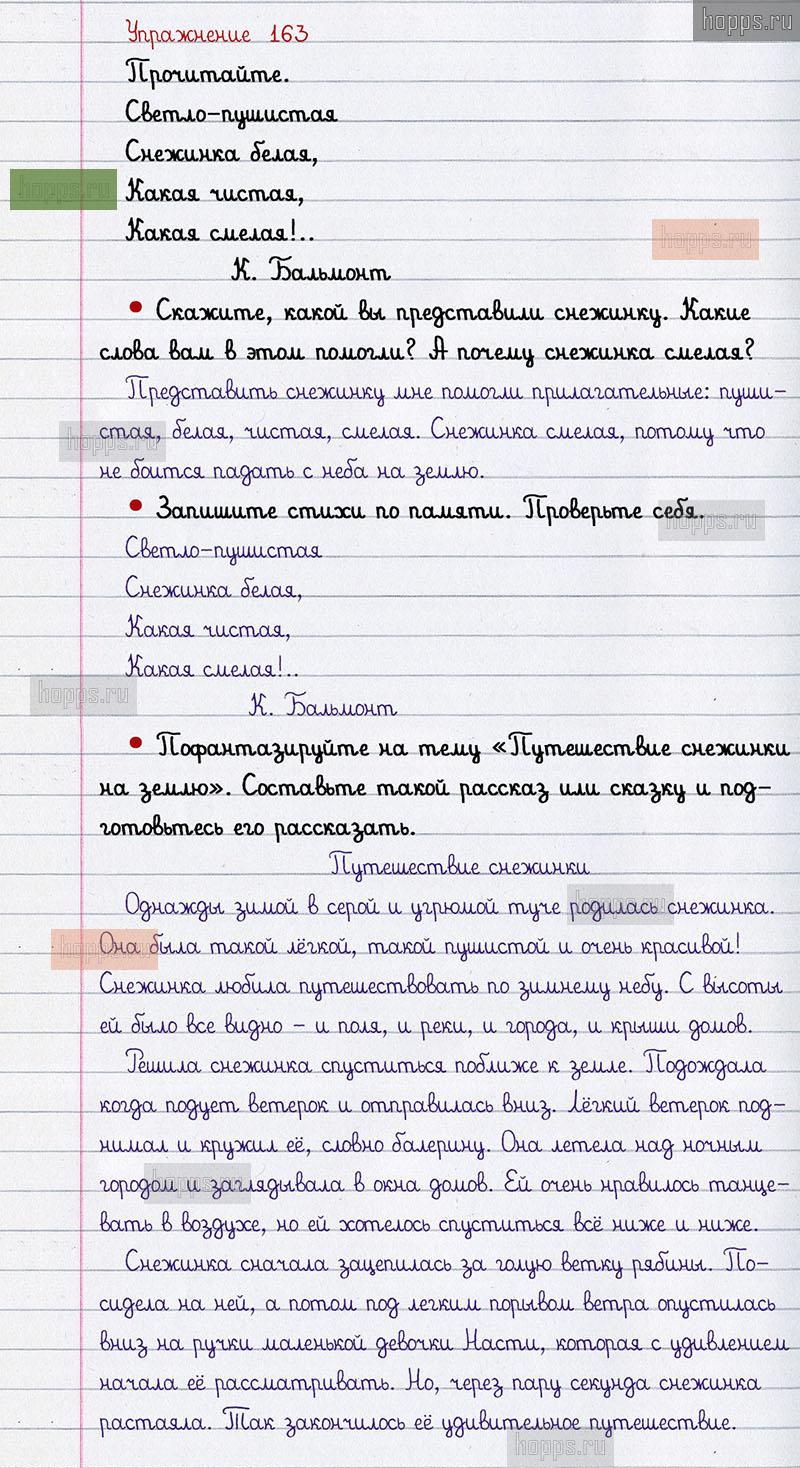 hopps.ru
Упражнение 163
Прочитайте.
Светло-пушистая
Снежинка белая,
hopps.ru
Какая чистая,
Какая смелая!..
hopps.ru
К. Бальмонт
• Скажите, какой вы представили снежинку. Какие
слова вам в этом помогли? А почему снежинка смелая?
Представить снежинку мне помогли прилагательные: пуши-
стая, белая, чистая, смелая. Снежинка смелая, потому что
hopps.ru
не боится падать с неба на землю.
• Запишите стихи по памяти. Проверьте себя.
hopps.ru
Светло-пушистая
Снежинка белая,
Какая чистая,
Какая смелая!..
hopps.ru
К. Бальмонт
• Пофантазируйте на тему «Путешествие снежинки
на землю». Составьте такой рассказ или сказку и под-
готовьтесь его рассказать.
Путешествие снежинки
Однажды зимой в серой и угрюмой туче родилась снежинка.
hopps.ru
Она была такой лёгкой, такой пушистой и очень красивой!
hopps.ru
Снежинка любила путешествовать по зимнему небу. С высоты
ей было все видно – и поля, и реки, и города, и крыши домов.
Решила снежинка спуститься поближе к земле. Подождала
когда подует ветерок и отправилась вниз. Лёгкий ветерок под-
нимал и кружил её, словно балерину. Она летела над ночным
городом и заглядывала в окна домов. Ей очень нравилось танце-
hopps.ru
вать в воздухе, но ей хотелось спуститься всё ниже и ниже.
Снежинка сначала зацепилась за голую ветку рябины. По-
сидела на ней, а потом под легким порывом ветра опустилась
вниз на ручки маленькой девочки Насти, которая с удивлением
начала её рассматривать. Но, через пару секунда снежинка
растаяла. Так закончилось её удивительное путешествие.
hopps.ru